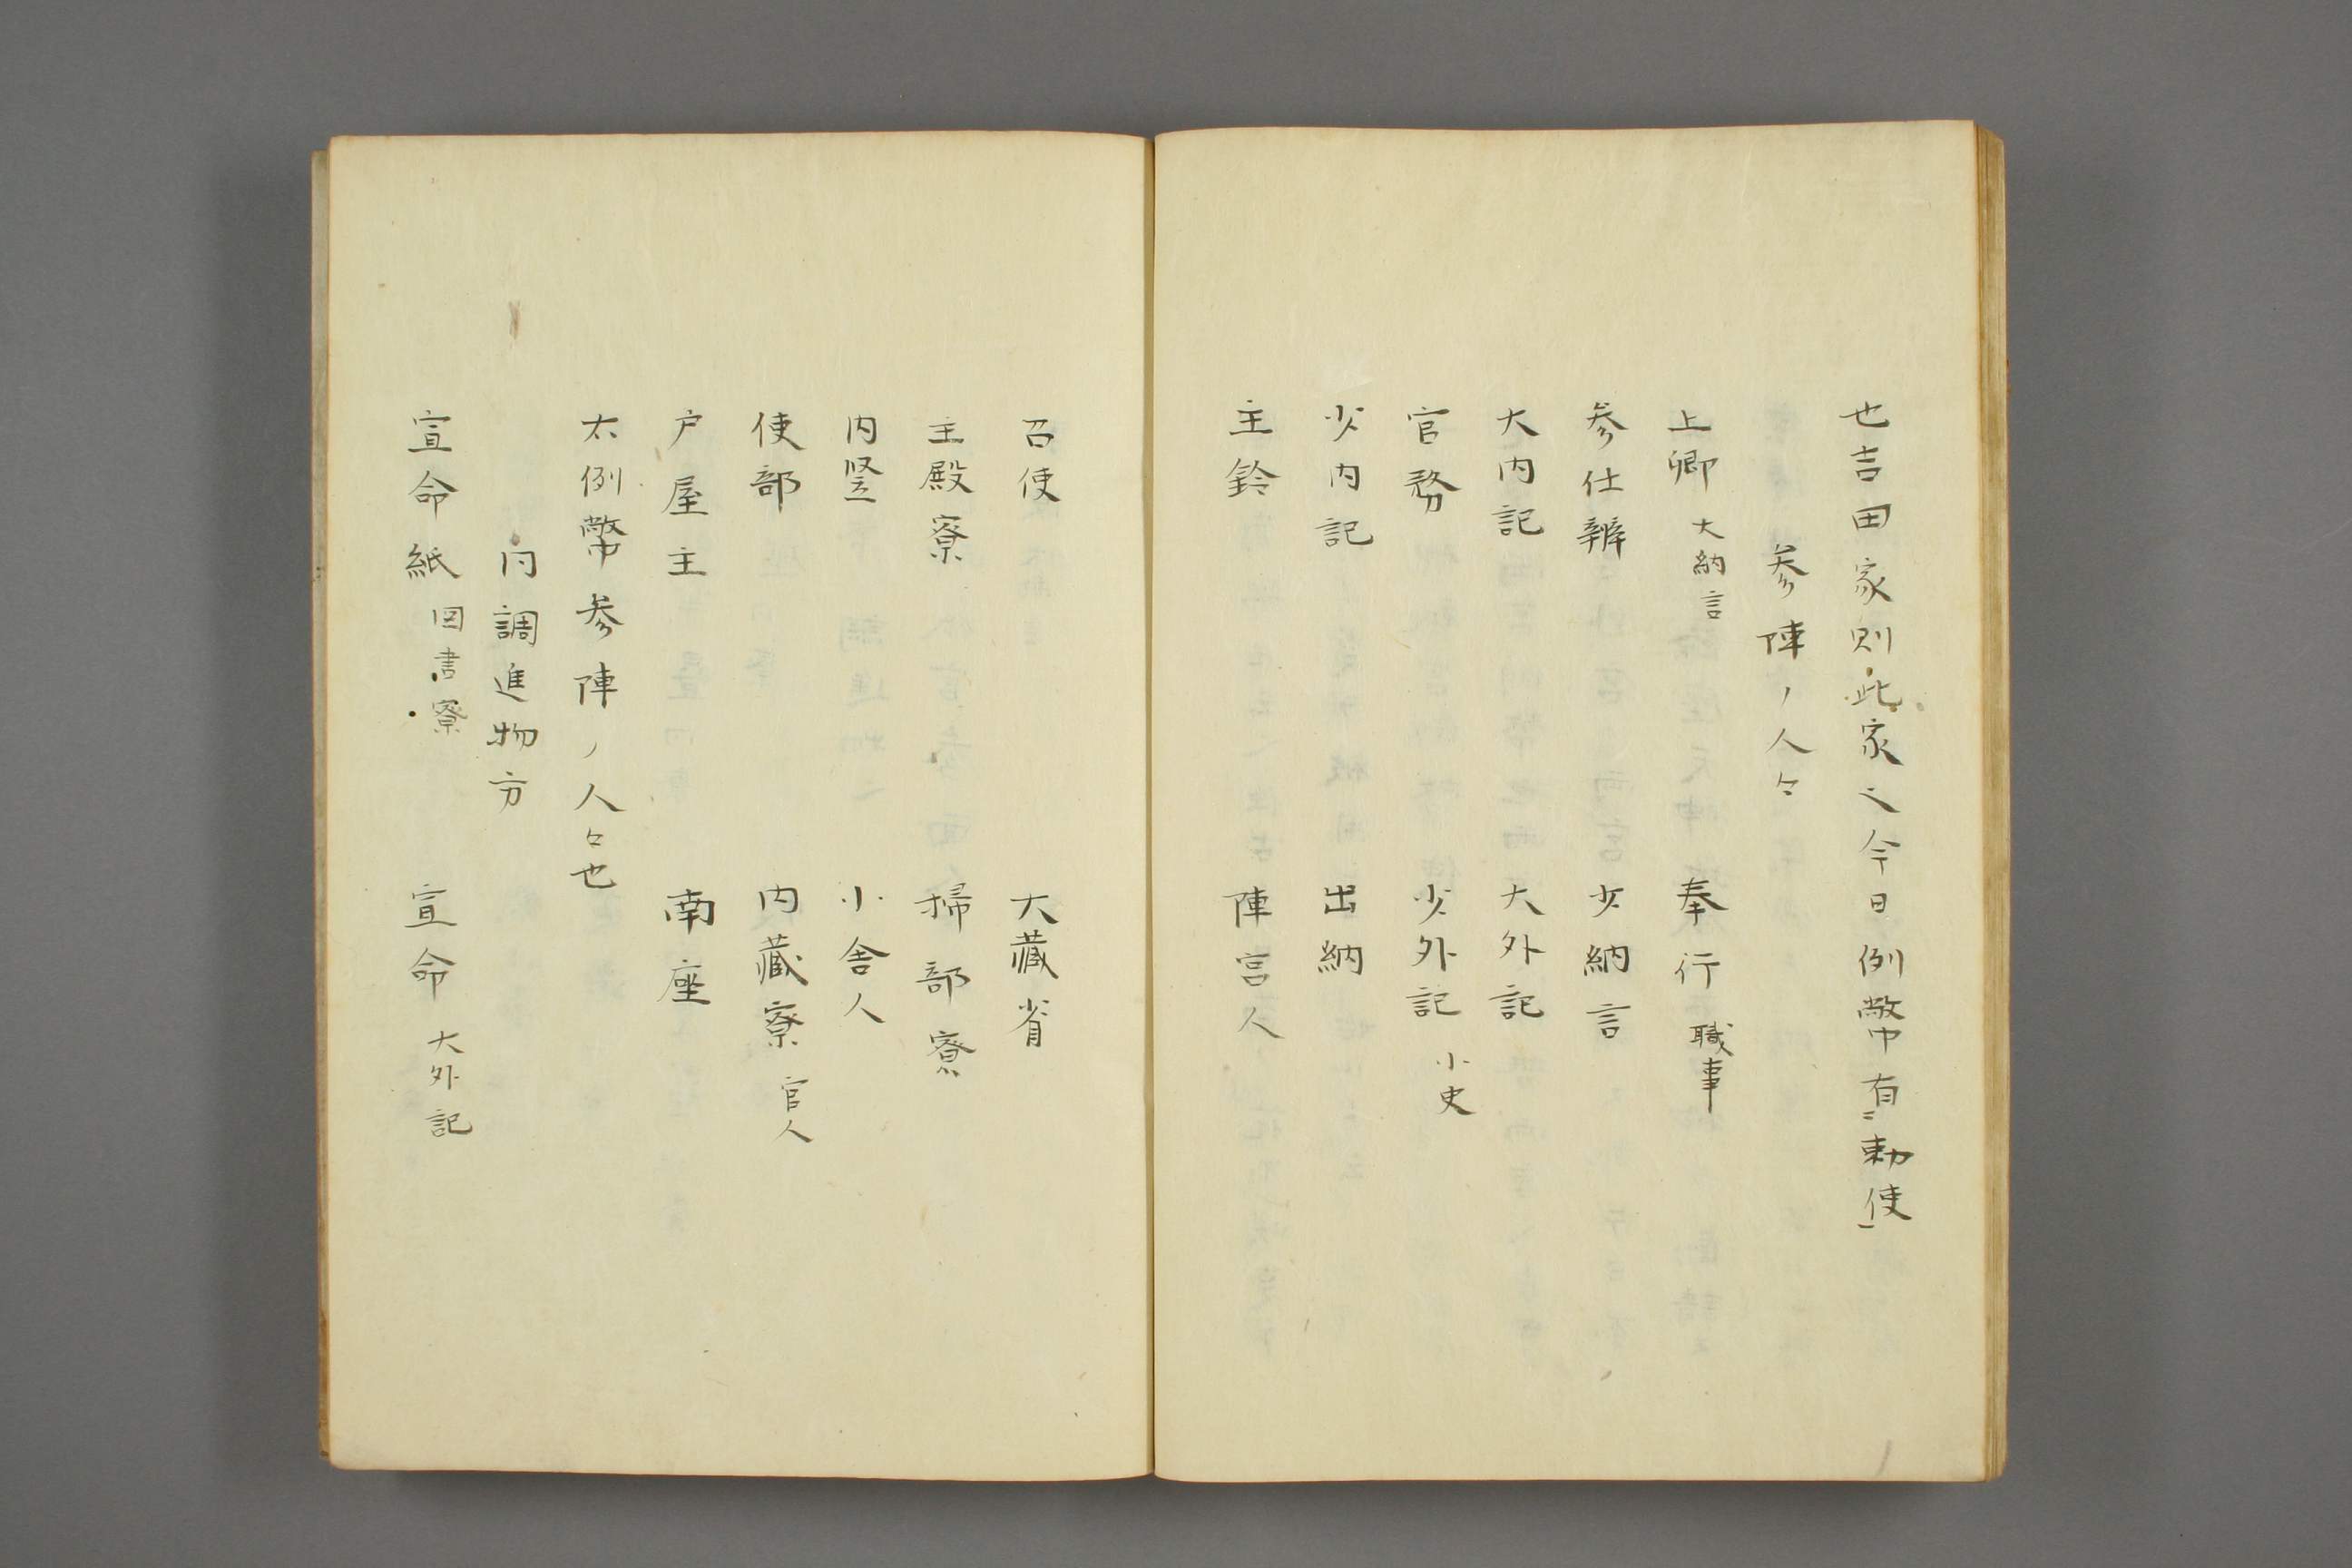 也吉田家則此家之今日例幣有二勅使一
参陣ノ人々
上卿 大納言 奉行 職事
参仕辨 少納言
大内記 大外記
官務 少外記 小史
少内記 出納
主鈴 陣官人
召使 大藏省
主殿寮 掃部寮
内竪 小舎人
使部 内藏寮 官人
戸屋主 南座
太例幣参陣ノ人々也
同調進物方
宣命紙 図書寮 宣命 大外記